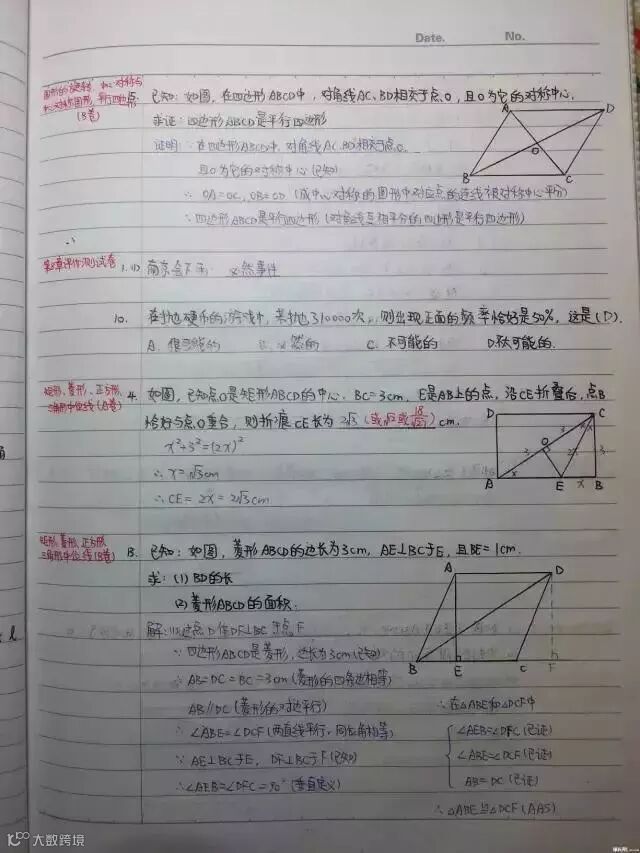 Date. No.
图形的旋转、中心对称与
中心对称图形、平行四边形
(B卷)
已知：如图，在四边形ABCD中，对角线AC、BD相交于点O，且O为它的对称中心.
求证：四边形ABCD是平行四边形
证明：∵在四边形ABCD中，对角线AC、BD相交于点O
且O为它的对称中心(已知)
∴OA=OC，OB=OD (成中心对称的图形中对应点的连线被对称中心平分)
∴四边形ABCD是平行四边形(对角线互相平分的四边形是平行四边形)
A D
O
B C
∴
第8章评价测试卷
1.(1) 南京会下雨 必然事件
10. 在抛硬币的游戏中，若抛10000次，则出现正面的频率恰好是50%，这是(D).
A. 很可能的 B. 必然的 C. 不可能的 D. 不太可能的.
矩形、菱形、正方形、
三角形中位线(A卷)
4. 如图，已知点O是矩形ABCD的中心，BC=3cm，E是AB上的点，沿CE折叠后，点B
恰好与点O重合，则折痕CE长为 2√3 (或√12或 18/√27) cm.
x²+3²=(2x)²
∴x=√3cm
∴CE=2x=2√3cm
D C
O
3
3
3
2x
x
A E x B
矩形、菱形、正方形、
三角形中位线(B卷)
18. 已知：如图，菱形ABCD的边长为3cm，AE⊥BC于E，且BE=1cm.
求：(1) BD的长
(2) 菱形ABCD的面积.
解：(1)过点D作DF⊥BC于点F
∵四边形ABCD是菱形，边长为3cm(已知)
∴AB=DC=BC=3cm(菱形的四条边相等)
AB∥DC(菱形的对边平行)
∴∠ABE=∠DCF(两直线平行，同位角相等)
∵AE⊥BC于E，DF⊥BC于F(已知)
∴∠AEB=∠DFC=90°(垂直定义)
A D
B E C F
∴在△ABE和△DCF中
∠AEB=∠DFC(已证)
∠ABE=∠DCF(已证)
AB=DC(已证)
∴△ABE≌△DCF(AAS)
大数跨境